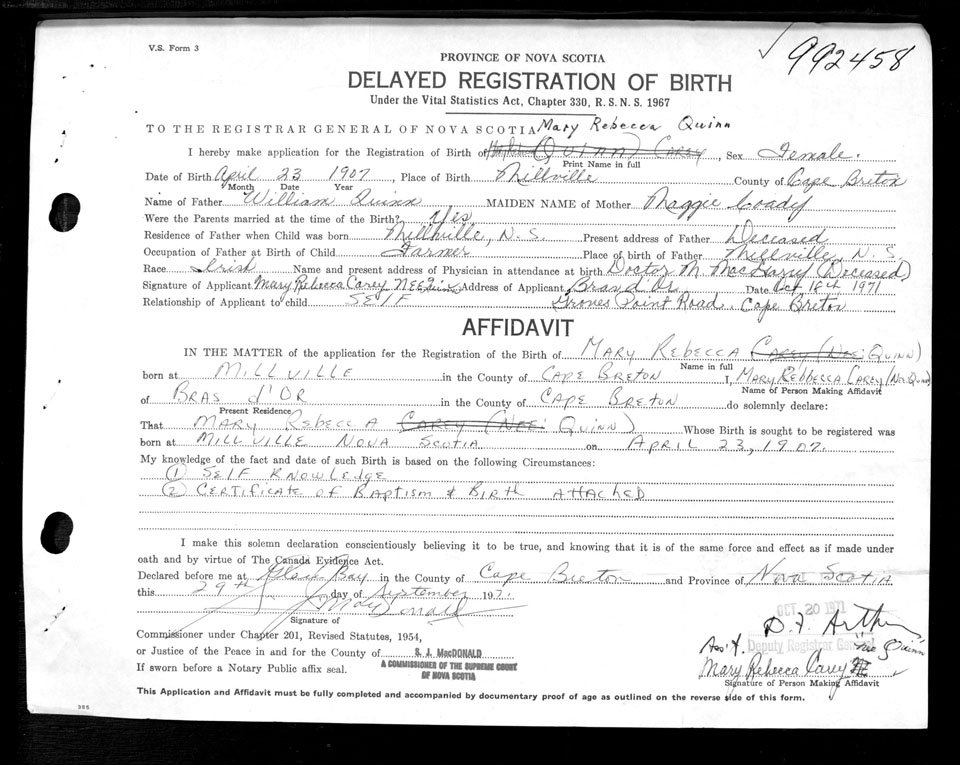 V.S. Form 3
992458
PROVINCE OF NOVA SCOTIA
DELAYED REGISTRATION OF BIRTH
Under the Vital Statistics Act, Chapter 330, R.S.N.S. 1967
TO THE REGISTRAR GENERAL OF NOVA SCOTIA Mary Rebecca Quinn
I hereby make application for the Registration of Birth of (Quinn) Carey, Sex Female.
Print Name in full
Date of Birth April 23 1907, Place of Birth Millville County of Cape Breton
Month Date Year
Name of Father William Quinn MAIDEN NAME of Mother Maggie Coady
Were the Parents married at the time of the Birth? Yes
Residence of Father when Child was born Millville, N.S. Present address of Father Deceased
Occupation of Father at Birth of Child Farmer Place of birth of Father Millville, N.S.
Race Irish Name and present address of Physician in attendance at birth Doctor M. MacGarry (Deceased)
Signature of Applicant Mary Rebecca Carey NEE Quinn Address of Applicant Bras d'Or Date Oct 18th 1971
Relationship of Applicant to child SELF Groves Point Road Cape Breton
AFFIDAVIT
IN THE MATTER of the application for the Registration of the Birth of MARY REBECCA CAREY (NEE QUINN)
Name in full
born at MILLVILLE in the County of CAPE BRETON I, MARY REBBECCA CAREY (NEE QUINN)
Name of Person Making Affidavit
of BRAS d'OR in the County of CAPE BRETON do solemnly declare:
Present Residence
That MARY REBECCA CAREY (NEE QUINN) Whose Birth is sought to be registered was
born at MILLVILLE NOVA SCOTIA on APRIL 23, 1907.
My knowledge of the fact and date of such Birth is based on the following Circumstances:
(1) SELF KNOWLEDGE
(2) CERTIFICATE OF BAPTISM & BIRTH ATTACHED
I make this solemn declaration conscientiously believing it to be true, and knowing that it is of the same force and effect as if made under
oath and by virtue of The Canada Evidence Act.
Declared before me at Glace Bay in the County of Cape Breton and Province of NOVA SCOTIA
this 29th day of September 1971.
OCT. 20 1971
Signature of
D. F. Arthur
Commissioner under Chapter 201, Revised Statutes, 1954,
Ass't. Deputy Registrar General
or Justice of the Peace in and for the County of S. J. MacDONALD
"nee Quinn"
A COMMISSIONER OF THE SUPREME COURT
OF NOVA SCOTIA
Mary Rebecca Carey
If sworn before a Notary Public affix seal.
Signature of Person Making Affidavit
This Application and Affidavit must be fully completed and accompanied by documentary proof of age as outlined on the reverse side of this form.
385